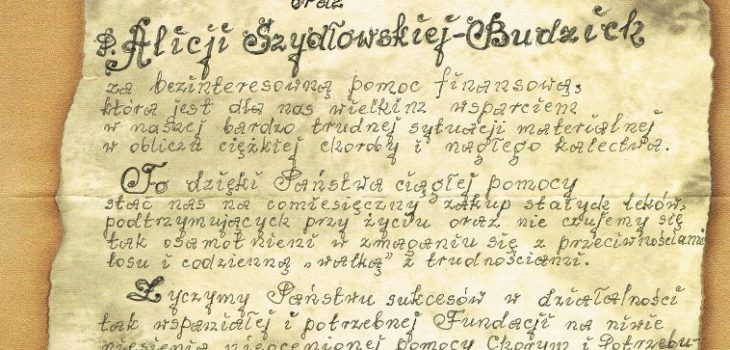 oraz
P. Alicji Szydłowskiej-Budzich
za bezinteresowną pomoc finansową,
która jest dla nas wielkim wsparciem
w naszej bardzo trudnej sytuacji materialnej
w obliczu ciężkiej choroby i nagłego kalectwa.
To dzięki Państwa ciągłej pomocy
stać nas na comiesięczny zakup stałych leków,
podtrzymujących przy życiu oraz nie czujemy się
tak osamotnieni w zmaganiu się z przeciwnościami
losu i codzienną „walką” z trudnościami.
Życzymy Państwu sukcesów w działalności
tak wspaniałej i potrzebnej Fundacji na niwie
niesienia nieocenionej pomocy Chorym i Potrzebu-